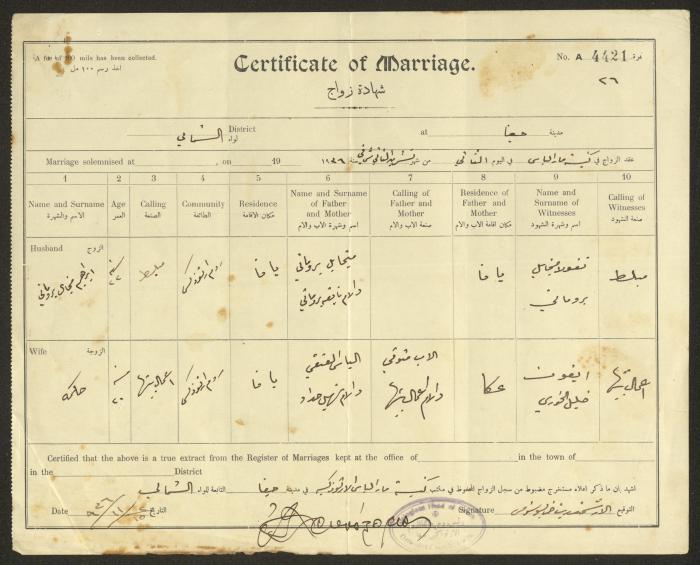 A fee of 100 mils has been collected.
اخذ رسم ١٠٠ مل
Certificate of Marriage.
No. A 4421 نمرة
٢٦
شهادة زواج
الشمالي لواء District
at حيفا مدينة
Marriage solemnised at , on 19
عقد الزواج في كنيسة مار الياس في اليوم الثاني من شهر تشرين الثاني سنة ١٩٣٦
1 2 3 4 5 6 7 8 9 10
Name and Surname
الاسم والشهرة
Age
العمر
Calling
الصنعة
Community
الطائفة
Residence
مكان الاقامة
Name and Surname of Father and Mother
اسم وشهرة الاب والام
Calling of Father and Mother
Residence of Father and Mother
مكان اقامة الاب والام
Name and Surname of Witnesses
اسم وشهرة الشهود
Calling of Witnesses
صنعة الشهود
Husband الزوج
ابراهيم ميخائيل
سنة ٢٢
مبلط
روم ارثوذكس
يافا
والام
يافا
نقولا ميخائيل
مبلط
Wife الزوجة
حكمه
سنة ٢٠
اعمال بيتها
روم ارثوذكس
يافا
الياس
والام
الاب متوفي
والام اعمال بيتها
عكا
ايفون
خليل الخوري
اعمال بيتها
Certified that the above is a true extract from the Register of Marriages kept at the office of in the town of
in the District
اشهد بان ما ذكر اعلاه مستخرج مضبوط من سجل الزواج المحفوظ في مكتب كنيسة مار الياس الارثوذكسية في مدينة حيفا التابعة للواء الشمالي
Date التاريخ
Signature التوقيع